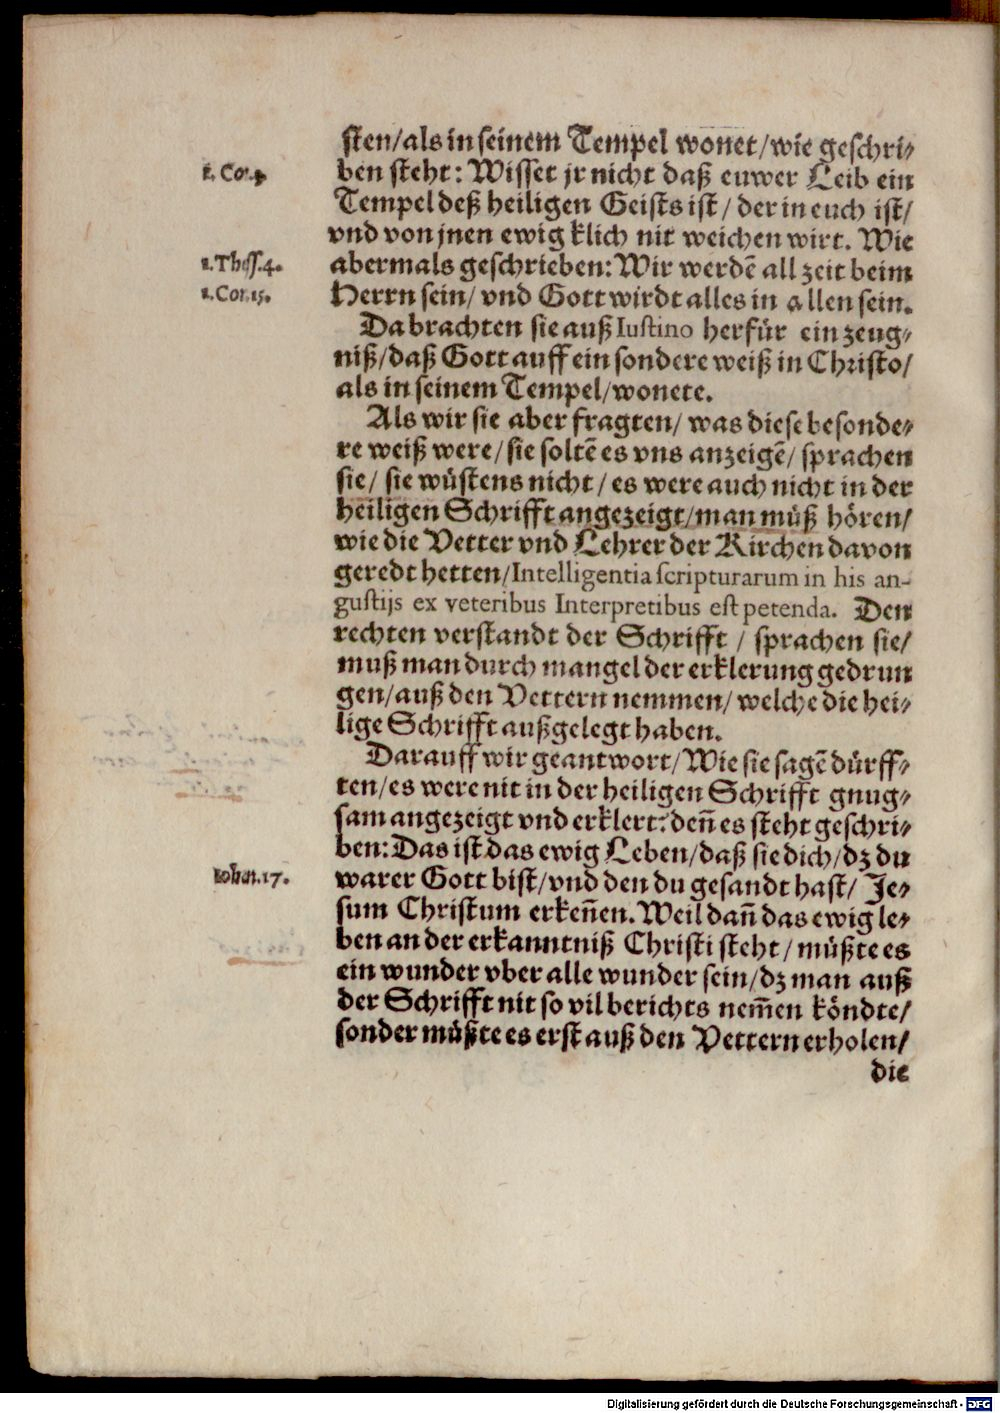 sten/als in seinem Tempel wonet/wie geschri-
1. Cor.
ben steht: Wisset jr nicht daß euwer Leib ein
Tempel deß heiligen Geists ist/ der in euch ist/
vnd von jnen ewigklich nit weichen wirt. Wie
1.Thess.4.
abermals geschrieben: Wir werdẽ all zeit beim
1.Cor.15.
Herrn sein/ vnd Gott wirdt alles in allen sein.
Da brachten sie auß Iustino herfür ein zeug-
niß/daß Gott auff ein sondere weiß in Christo/
als in seinem Tempel/wonete.
Als wir sie aber fragten/ was diese besonde-
re weiß were/ sie soltẽ es vns anzeigẽ/ sprachen
sie/ sie wüstens nicht/ es were auch nicht in der
heiligen Schrifft angezeigt/man müß hören/
wie die Vetter vnd Lehrer der Kirchen davon
geredt hetten/Intelligentia scripturarum in his an-
gustijs ex veteribus Interpretibus est petenda. Den
rechten verstandt der Schrifft / sprachen sie/
muß man durch mangel der erklerung gedrun
gen/auß den Vettern nemmen/ welche die hei-
lige Schrifft außgelegt haben.
Darauff wir geantwort/ Wie sie sagẽ dürff-
ten/es were nit in der heiligen Schrifft gnug-
sam angezeigt vnd erklert: deñ es steht geschri-
ben: Das ist das ewig Leben/daß sie dich/dz du
Iohan.17.
warer Gott bist/vnd den du gesandt hast/ Je-
sum Christum erkeñen. Weil dañ das ewig le-
ben an der erkanntniß Christi steht/ müßte es
ein wunder vber alle wunder sein/dz man auß
der Schrifft nit so vil berichts nem̃en köndte/
sonder müßte es erst auß den Vettern erholen/
die
Digitalisierung gefördert durch die Deutsche Forschungsgemeinschaft - DFG